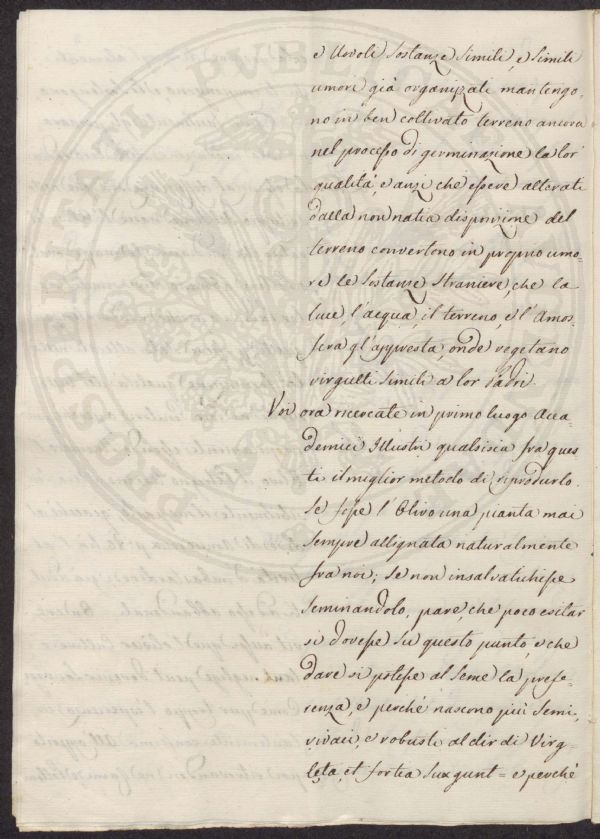 e Uovoli sostanze simili, e simili
umori già organizzati mantengo-
no in ben coltivato terreno ancora
nel processo di germinazione la lor
qualità, e anzi che essere alterati
dalla non natia disposizione del
terreno convertono in proprio umo-
re le sostanze straniere, che la
luce, l'acqua, il terreno, e l'Atmos-
fera gl'appresta, onde vegetano
virgulti simili a lor Padri.
Voi ora ricercate in primo luogo Acca-
demici Illustri qualsisia fra ques-
ti il miglior metodo di riprodurlo.
Se fosse l'Olivo una pianta mai
sempre allignata naturalmente
fra noi; se non insalvatichisse
seminandolo, pare, che poco esitar
si dovesse su questo punto, e che
dare si potesse al seme la prefe-
renza, e perché nascono più semi,
vivaci, e robusti al dir di Virg-
læta, et fortia surgunt = e perché